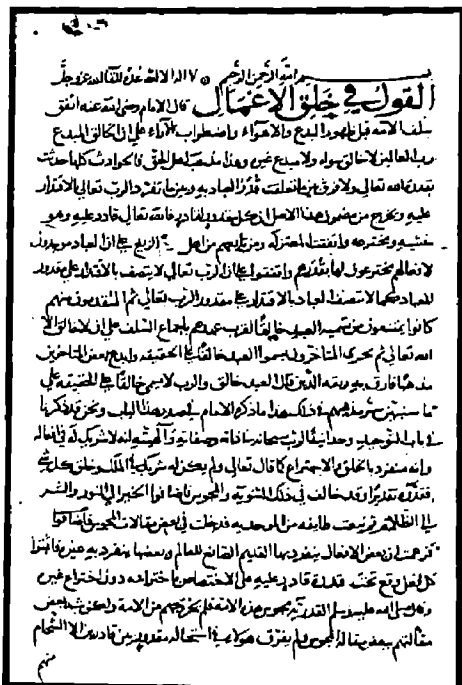 بسم الله الرحمن الرحيم لا اله الا الله عدة للقاء الله عز وجل
القول في خلق الاعمال قال الامام رضي الله عنه اتفق
سلف الامة قبل ظهور البدع والاهواء واضطراب الآراء على ان الخالق المبدع
رب العالمين لا خالق سواه ولا مبدع غيره وهذا مذهب اهل الحق فالحوادث كلها حدثت
بقدرة الله تعالى ولا فرق بين ما تعلقت قدر العباد به وبين ما تفرد الرب تعالى بالاقتدار
عليه ويخرج من مضمون هذا الاصل ان كل مقدور لقادر فالله تعالى قادر عليه وهو
منشيه ومخترعه واتفقت المعتزلة ومن تابعهم من اهل الزيغ على ان العباد موجدون
لافعالهم مخترعون لها بقدرهم واتفقوا على ان الرب تعالى لا يتصف بالاقتدار على مقدور
العباد كما لا يتصف العباد بالاقتدار على مقدور الرب تعالى ثم المتقدمون منهم
كانوا يمتنعون من تسمية العبد خالقا لقرب عهدهم باجماع السلف على ان لا خالق الا
الله تعالى ثم تجرى المتاخرون فسموا العبد خالقا على الحقيقه وابدع بعض المتاخرين
مذهبا فارق به ربقة الدين فقال العبد خالق والرب لا يسمى خالقا على الحقيقة على
ما سنبين سر مذهبهم في ذلك هذا ما ذكره الامام في صدر هذا الباب ونحن قد ذكرنا
في باب التوحيد وحدانية الرب سبحانه بذاته وصفاته والهيته انه لا شريك له في افعاله
وانه منفرد بالخلق والاختراع كما قال تعالى ولم يكن له شريك في الملك وخلق كل شي
فقدره تقديرا وقد خالف في ذلك الثنوية والمجوس فاضافوا الخير الى النور والشر
الى الظلام ثم نبعت طايفه من الموحديه فدخلت في بعض مقالات المجوس
فزعمت ان بعض الافعال ينفرد بها القديم الصانع للعالم وبعضها ينفرد به غيره فاثبتوا
كل فعل وقع تحت قدرة قادر عليه على الاختصاص باختراعه دون اختراع غيره
صلى الله عليه وسلم القدرية مجوس هذه الامة فلم يخرجهم من الامة ولكن شبه بعض
مقالتهم ببعض مقالة المجوس ولم يفرق هولا في استحالة مقدور بين قادرين الا الشحام
منهم